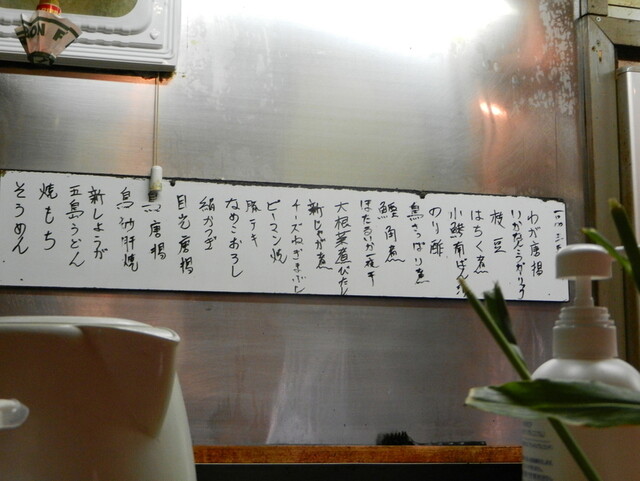 わか唐揚
枝豆
はちく煮
小鯵南ばん
のり酢
鳥さっぱり煮
鰹角煮
ほたるいか一夜干
大根菜煮びたし
新じゃが煮
チーズねぎまぶし
ピーマン焼
豚テキ
なめこおろし
絹かつぎ
目光唐揚
鳥唐揚
鳥砂肝焼
新しょうが
五島うどん
焼もち
そうめん